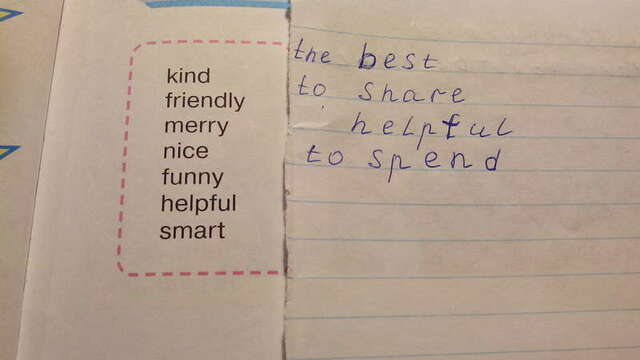 kind
friendly
merry
nice
funny
helpful
smart
the best
to share
helpful
to spend